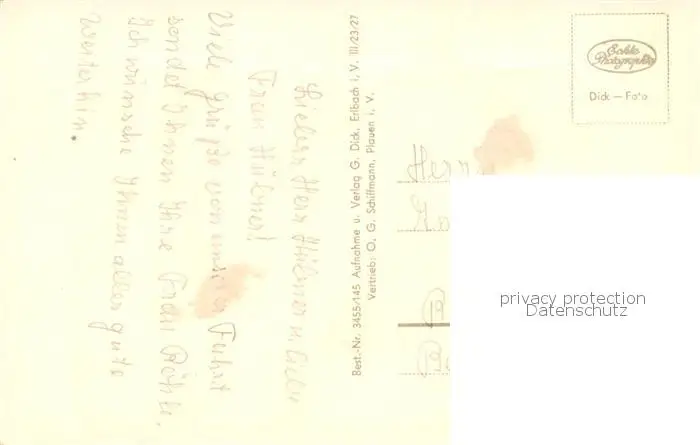 Lieber Herr Hübner u. liebe
Frau Hübner!
Viele Grüße von unserer Fahrt
sendet Ihnen Ihre Frau
Ich wünsche Ihnen alles gute
weiterhin.
Best.-Nr. 3455/145 Aufnahme u. Verlag G. Dick, Erlbach i. V. III/23/27
Vertrieb: O. G. Schiffmann, Plauen i. V.
Echte
Photographie
Dick – Foto
Herrn
privacy protection
Datenschutz